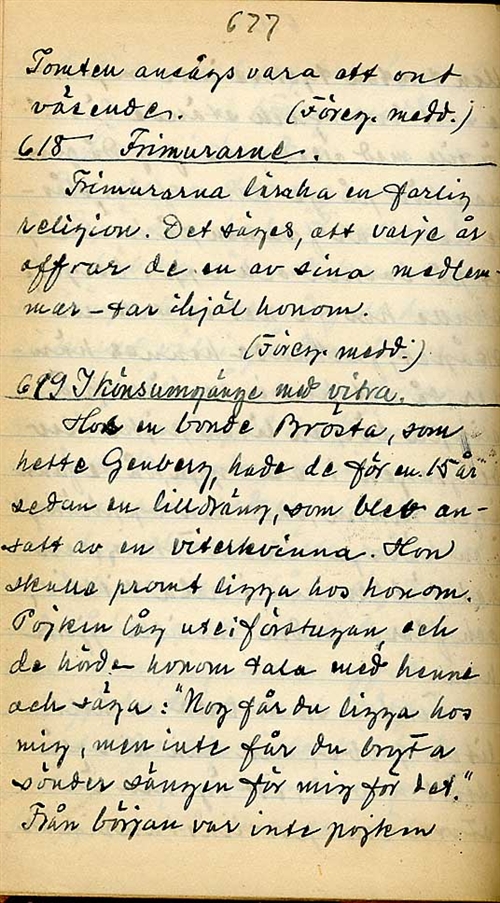 677
Tomten ansågs vara ett ont
väsende. (Föreg. medd.)
618 Frimurarne.
Frimurarna läraha en farlig
religion. Det säges, att varje år
offrar de en av sina medlem-
mar – tar ihjäl honom.
(Föreg. medd.)
619 I könsumgänge med vitra.
Hos en bonde Brösta, som
hette Genberg, hade de för en 15 år
sedan en lilldräng, som blev an-
satt av en viterkvinna. Hon
skulle promt ligga hos honom.
Pojken låg ute i förstugan och
de hörde honom tala med henne
och säga: "Nog får du ligga hos
mig, men inte får du bryta
sönder sängen för mig för det."
Från början var inte pojken